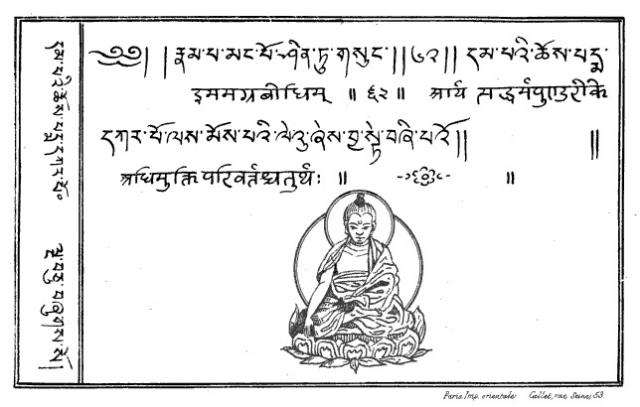 ༄༅། །རྣམ་པ་མང་པོ་ཤིན་ཏུ་གསུང་།།༦༢།། དམ་པའི་ཆོས་པདྨ་
इममग्रबोधिम् ॥ ६२ ॥ आर्य सद्धर्मपुण्डरीके
དཀར་པོ་ལས་མོས་པའི་ལེའུ་ཞེས་བྱ་སྟེ་བཞི་པའོ།། ॥
अधिमुक्तिपरिवर्तश्चतुर्थः ॥ ॥
དམ་པའི་ཆོས་པདྨ་དཀར་པོ
Paris Imp. orientale Callet, rue Seine, 53.